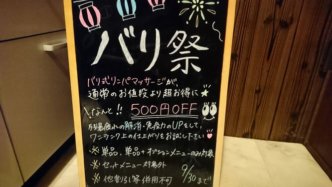 バリ祭
バリ式リンパマッサージが、
通常のお値段より超お得に
なんと!! 500円OFF
の解消・免疫力のUPをして、
ワンランク上の仕上がりをお試し下さい
※単品、単品+オプションメニューのみ対象
※セットメニュー対象外
※他割引等併用不可
9/30まで